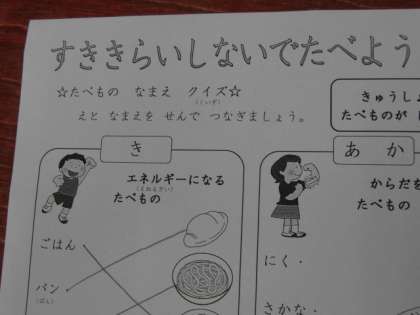 すききらいしないでたべよう
☆たべもの なまえ クイズ☆
(くいず)
えと なまえを せんで つなぎましょう。
きゅうしょ
たべものが
き
エネルギーになる
(えねるぎい)
たべもの
ごはん
パン・
(ぱん)
あ か
からだを
たべもの
にく・
さかな・